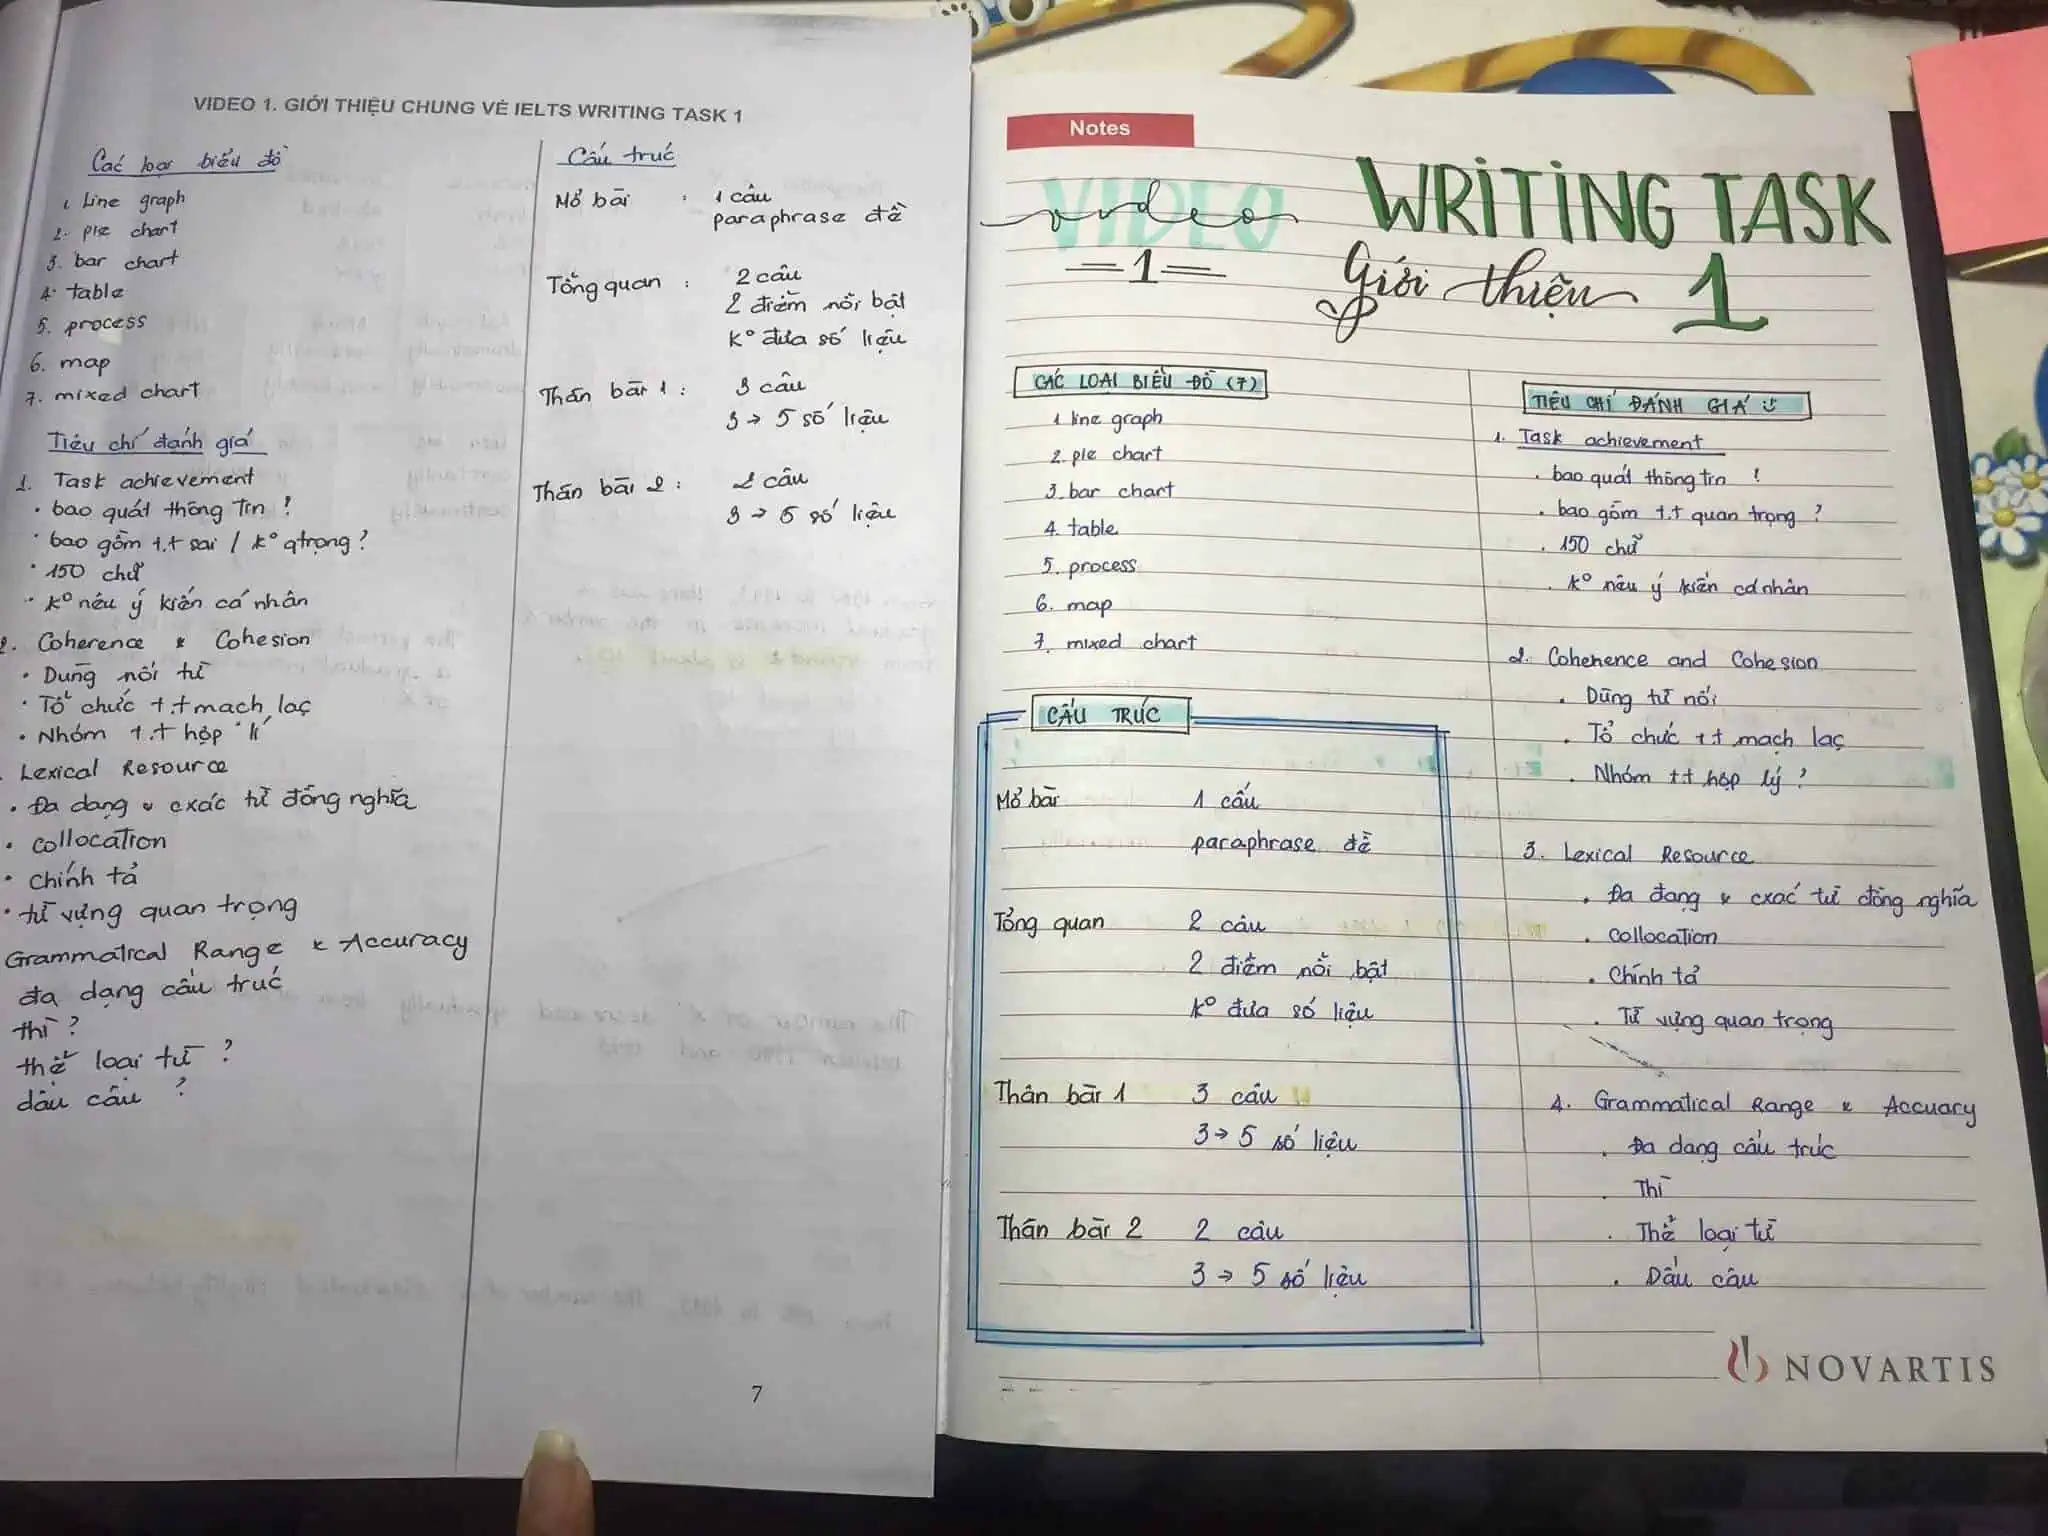 VIDEO 1. GIỚI THIỆU CHUNG VỀ IELTS WRITING TASK 1
Các loại biểu đồ
1. Line graph
2. pie chart
3. bar chart
4. table
5. process
6. map
7. mixed chart
Tiêu chí đánh giá
1. Task achievement
• bao quát thông tin !
• bao gồm t.t sai / k° qtrọng ?
• 150 chữ
• k° nêu ý kiến cá nhân
2. Coherence & Cohesion
• Dùng nối từ
• Tổ chức t.t mạch lạc
• Nhóm t.t hợp lí
Lexical Resource
• Đa dạng & cxác từ đồng nghĩa
• collocation
• chính tả
• từ vựng quan trọng
Grammatical Range & Accuracy
đa dạng cấu trúc
thì ?
thể loại từ ?
dấu câu ?
Cấu trúc
Mở bài : 1 câu
paraphrase đề
Tổng quan : 2 câu
2 điểm nổi bật
k° đưa số liệu
Thân bài 1 : 3 câu
3 → 5 số liệu
Thân bài 2 : 2 câu
3 → 5 số liệu
7
Notes
VIDEO
video
1
WRITING TASK 1
Giới thiệu
CÁC LOẠI BIỂU ĐỒ (7)
1. line graph
2. pie chart
3. bar chart
4. table
5. process
6. map
7. mixed chart
CẤU TRÚC
Mở bài 1 câu
paraphrase đề
Tổng quan 2 câu
2 điểm nổi bật
k° đưa số liệu
Thân bài 1 3 câu
3 → 5 số liệu
Thân bài 2 2 câu
3 → 5 số liệu
TIÊU CHÍ ĐÁNH GIÁ
1. Task achievement
• bao quát thông tin !
• bao gồm t.t quan trọng ?
• 150 chữ
• k° nêu ý kiến cá nhân
2. Coherence and Cohesion
• Dùng từ nối
• Tổ chức t.t mạch lạc
• Nhóm t.t hợp lý ?
3. Lexical Resource
• Đa dạng & cxác từ đồng nghĩa
• collocation
• Chính tả
• Từ vựng quan trọng
4. Grammatical Range & Accuacy
• Đa dạng cấu trúc
• Thì
• Thể loại từ
• Dấu câu
NOVARTIS